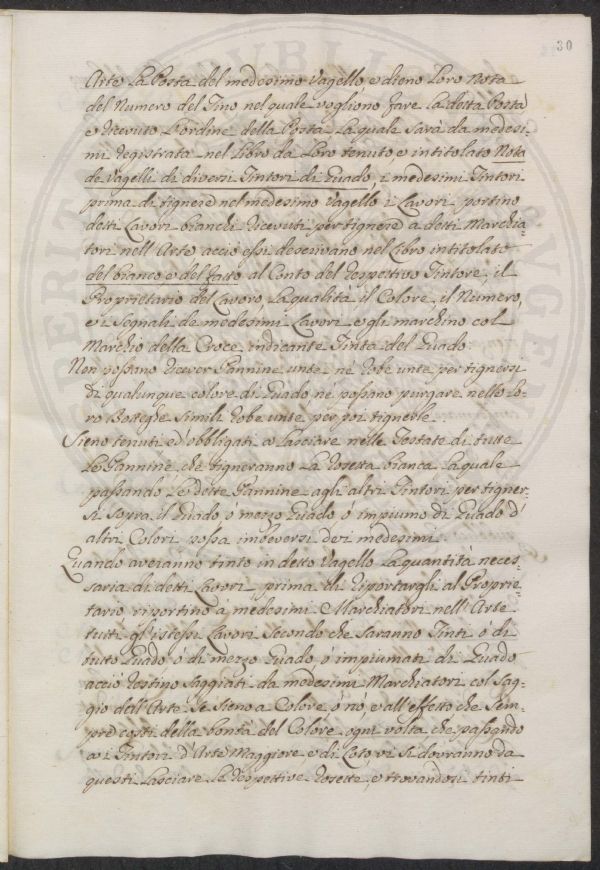 30
Arte La Posta del medesimo Vagello, e dieno Loro Nota
del Numero del Tino nel quale vogliono fare La detta Posta
e Ricevuto L'ordine della Posta La quale sarà da medesi-
mi Registrata nel Libro da Loro tenuto e intitolato Nota
de Vagelli di diversi Tintori di Guado, i medesimi Tintori
prima di tignere nel medesimo Vagello i Lavori portino
detti Lavori bianchi Ricevuti per tignere a detti Marchia-
tori nell'Arte acciò essi descrivano nel Libro intitolato
del bianco e del fatto al Conto del Respettivo Tintore, il
Proprietario del Lavoro, La qualità il Colore, il Numero,
e i Segnali de medesimi Lavori e gli marchino col
Marchio della Croce indicante Tinta del Guado.
Non possano Ricever Pannine unte né Robe unte per tignersi
di qualunque colore di Guado, né possano purgare nelle Lo-
ro Botteghe Simili Robe unte per poi tignerle.
Sieno tenuti ed obbligati a Lasciare nelle Testate di tutte
Le Pannine che tigneranno La Rosetta bianca La quale
passando Le dette Pannine agli altri Tintori per tigner-
si Sopra il Guado o mezzo Guado o impiumo di Guado d'
altri Colori possa imbeversi dei medesimi.
Quando averanno tinto in detto Vagello La quantità neces-
saria di detti Lavori prima di Riportargli al Proprie-
tario riportino a medesimi Marchiatori nell'Arte
tutti gl'istessi Lavori Secondo che Saranno Tinti ó di
tutto Guado ó di mezzo Guado, o impiumati di Guado
acciò Restino Saggiati da medesimi Marchiatori col Sag-
gio dell'Arte Se Sieno a Colore, ó nó, e all'effetto che Sem-
pre costi della bontà del Colore ogni volta che passando
a i Tintori d'Arte Maggiore, e di Loto, vi si dovranno da
questi Lasciare Le Respettive Rosette, e trovandosi tinti